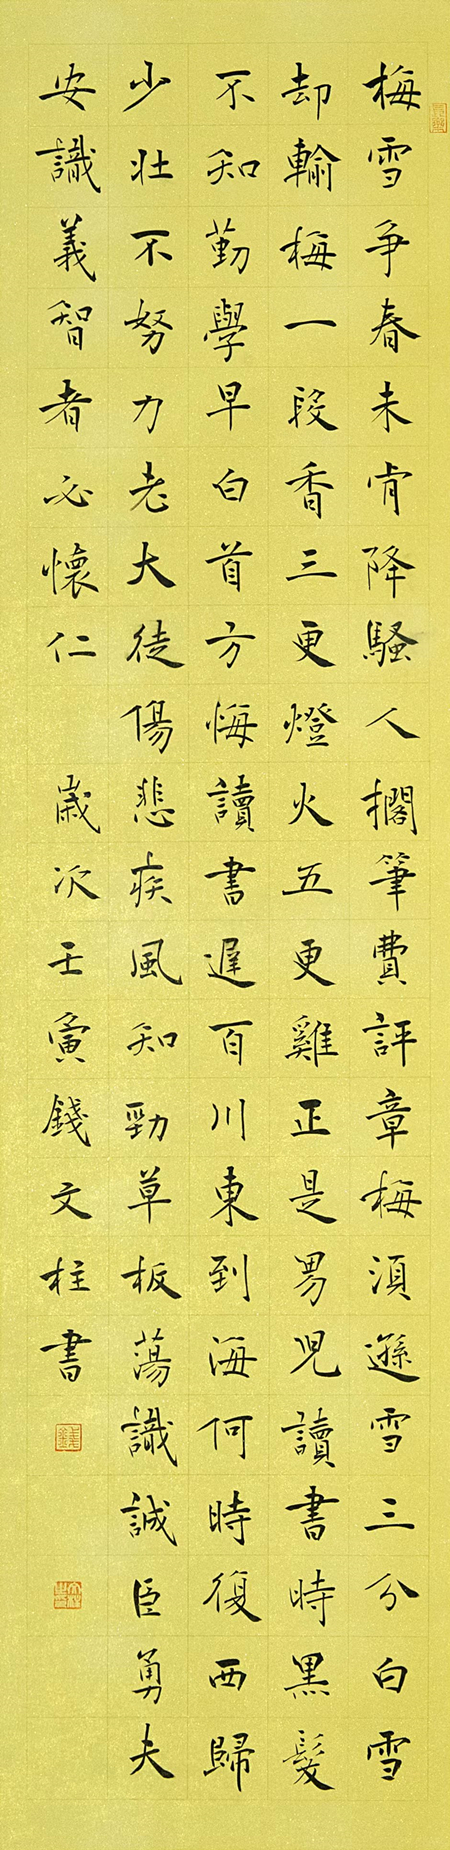 梅雪争春未肯降騷人擱筆費評章梅須遜雪三分白雪
却輸梅一段香三更燈火五更雞正是男児讀書時黑髮
不知勤學早白首方悔讀書遲百川東到海何時復西歸
少壯不努力老大徒傷悲疾風知勁草板蕩識誠臣勇夫
安識義智者必懷仁 歲次壬寅錢文柱書